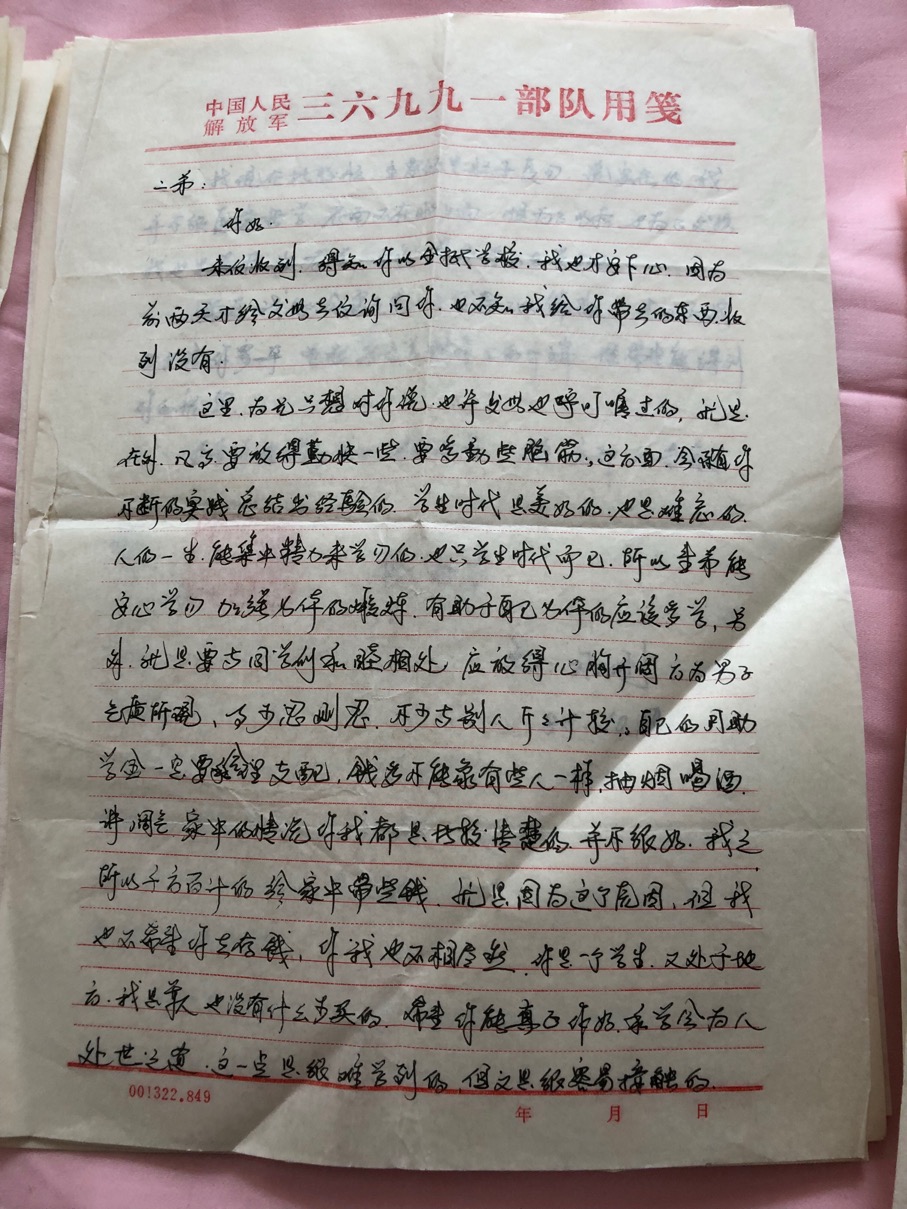 中国人民解放军 三六九九一部队用笺
二弟：
你好.
来信收到. 得知你以全抵学校. 我也才安下心. 因为
前两天才给父母去信询问你. 也不知我给你带去的东西.收
到没有.
这里.为兄只想对你说.也许父母也叮嘱过的, 就是.
在外. 凡事.要放得勤快一些. 要多动些脑筋, 这方面. 会随你
不断的实践总结出经验的. 学生时代是美好的. 也是难忘的.
人的一生.能集中精力来学习的.也只学生时代而已. 所以望弟能
安心学习 加强身体的锻炼. 有助于自己身体的应该多学, 另
外. 就是要与同学们和睦相处 应放得心胸开阔 方为男子
气度所现, 忍则忍. 不与别人斤斤计较, 自己的助
学金一定要合理支配, 钱多不能象有些人一样, 抽烟喝酒.
讲阔气 家中的情况你我都是比较清楚的 并不很好. 我之
所以千方百计的给家中带些钱. 就是因为这个原因, 但我
也不希望你去存钱, 你我也不相同, 你是一个学生. 又处于地
方. 我是军人 也没有什么买的. 希望你能 作好. 学会为人
处世之道. 这一点是很难学到的, 但又是很容易接触的.
001322.849
年 月 日